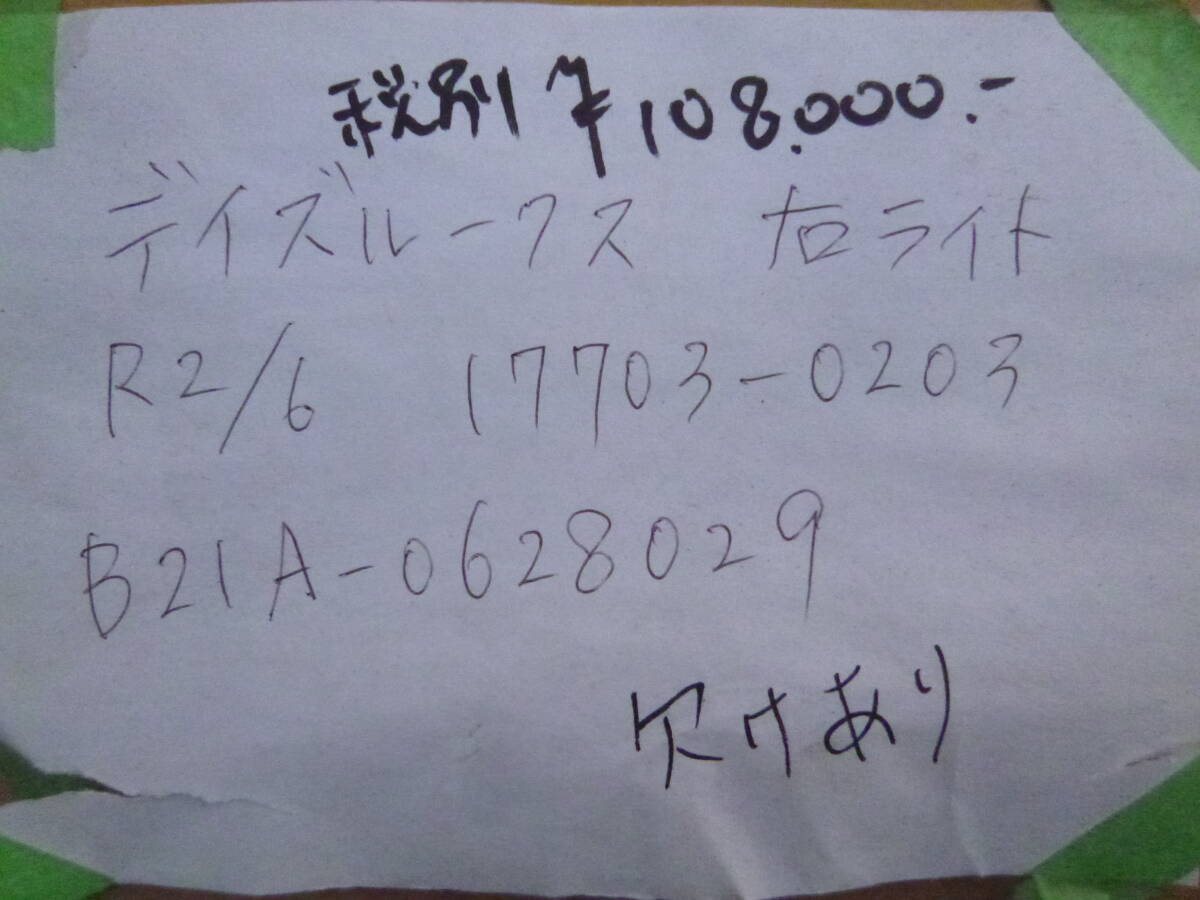 税別 ¥108.000.-
デイズルークス 右ライト
R2/6 17703-0203
B21A-0628029
欠けあり